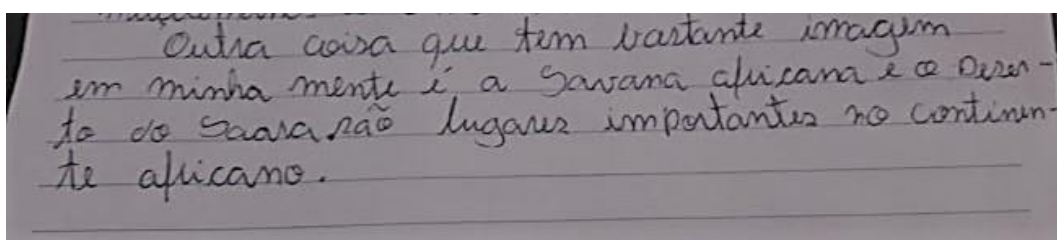 Outra coisa que tem bastante imagem
em minha mente é a Savana africana e o Deser-
to do Saara são lugares importantes no continen-
te africano.